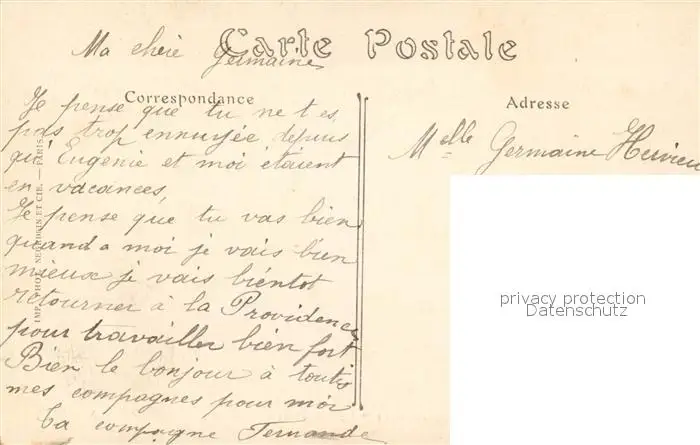 Carte Postale
Ma chère Germaine
Correspondance
Je pense que tu ne t es
pas trop ennuyée depuis
qu'Eugenie et moi étaient
en vacances
Je pense que tu vas bien
quand a moi je vais bien
mieux je vais bientot
retourner à la Providence
pour travailler bien fort
Bien le bonjour à toutes
mes compagnes pour moi
Ta compagne Fernande
IMP. PHOT. NEURDEIN ET CIE. — PARIS
Adresse
Melle Germaine Hervieu
privacy protection
Datenschutz